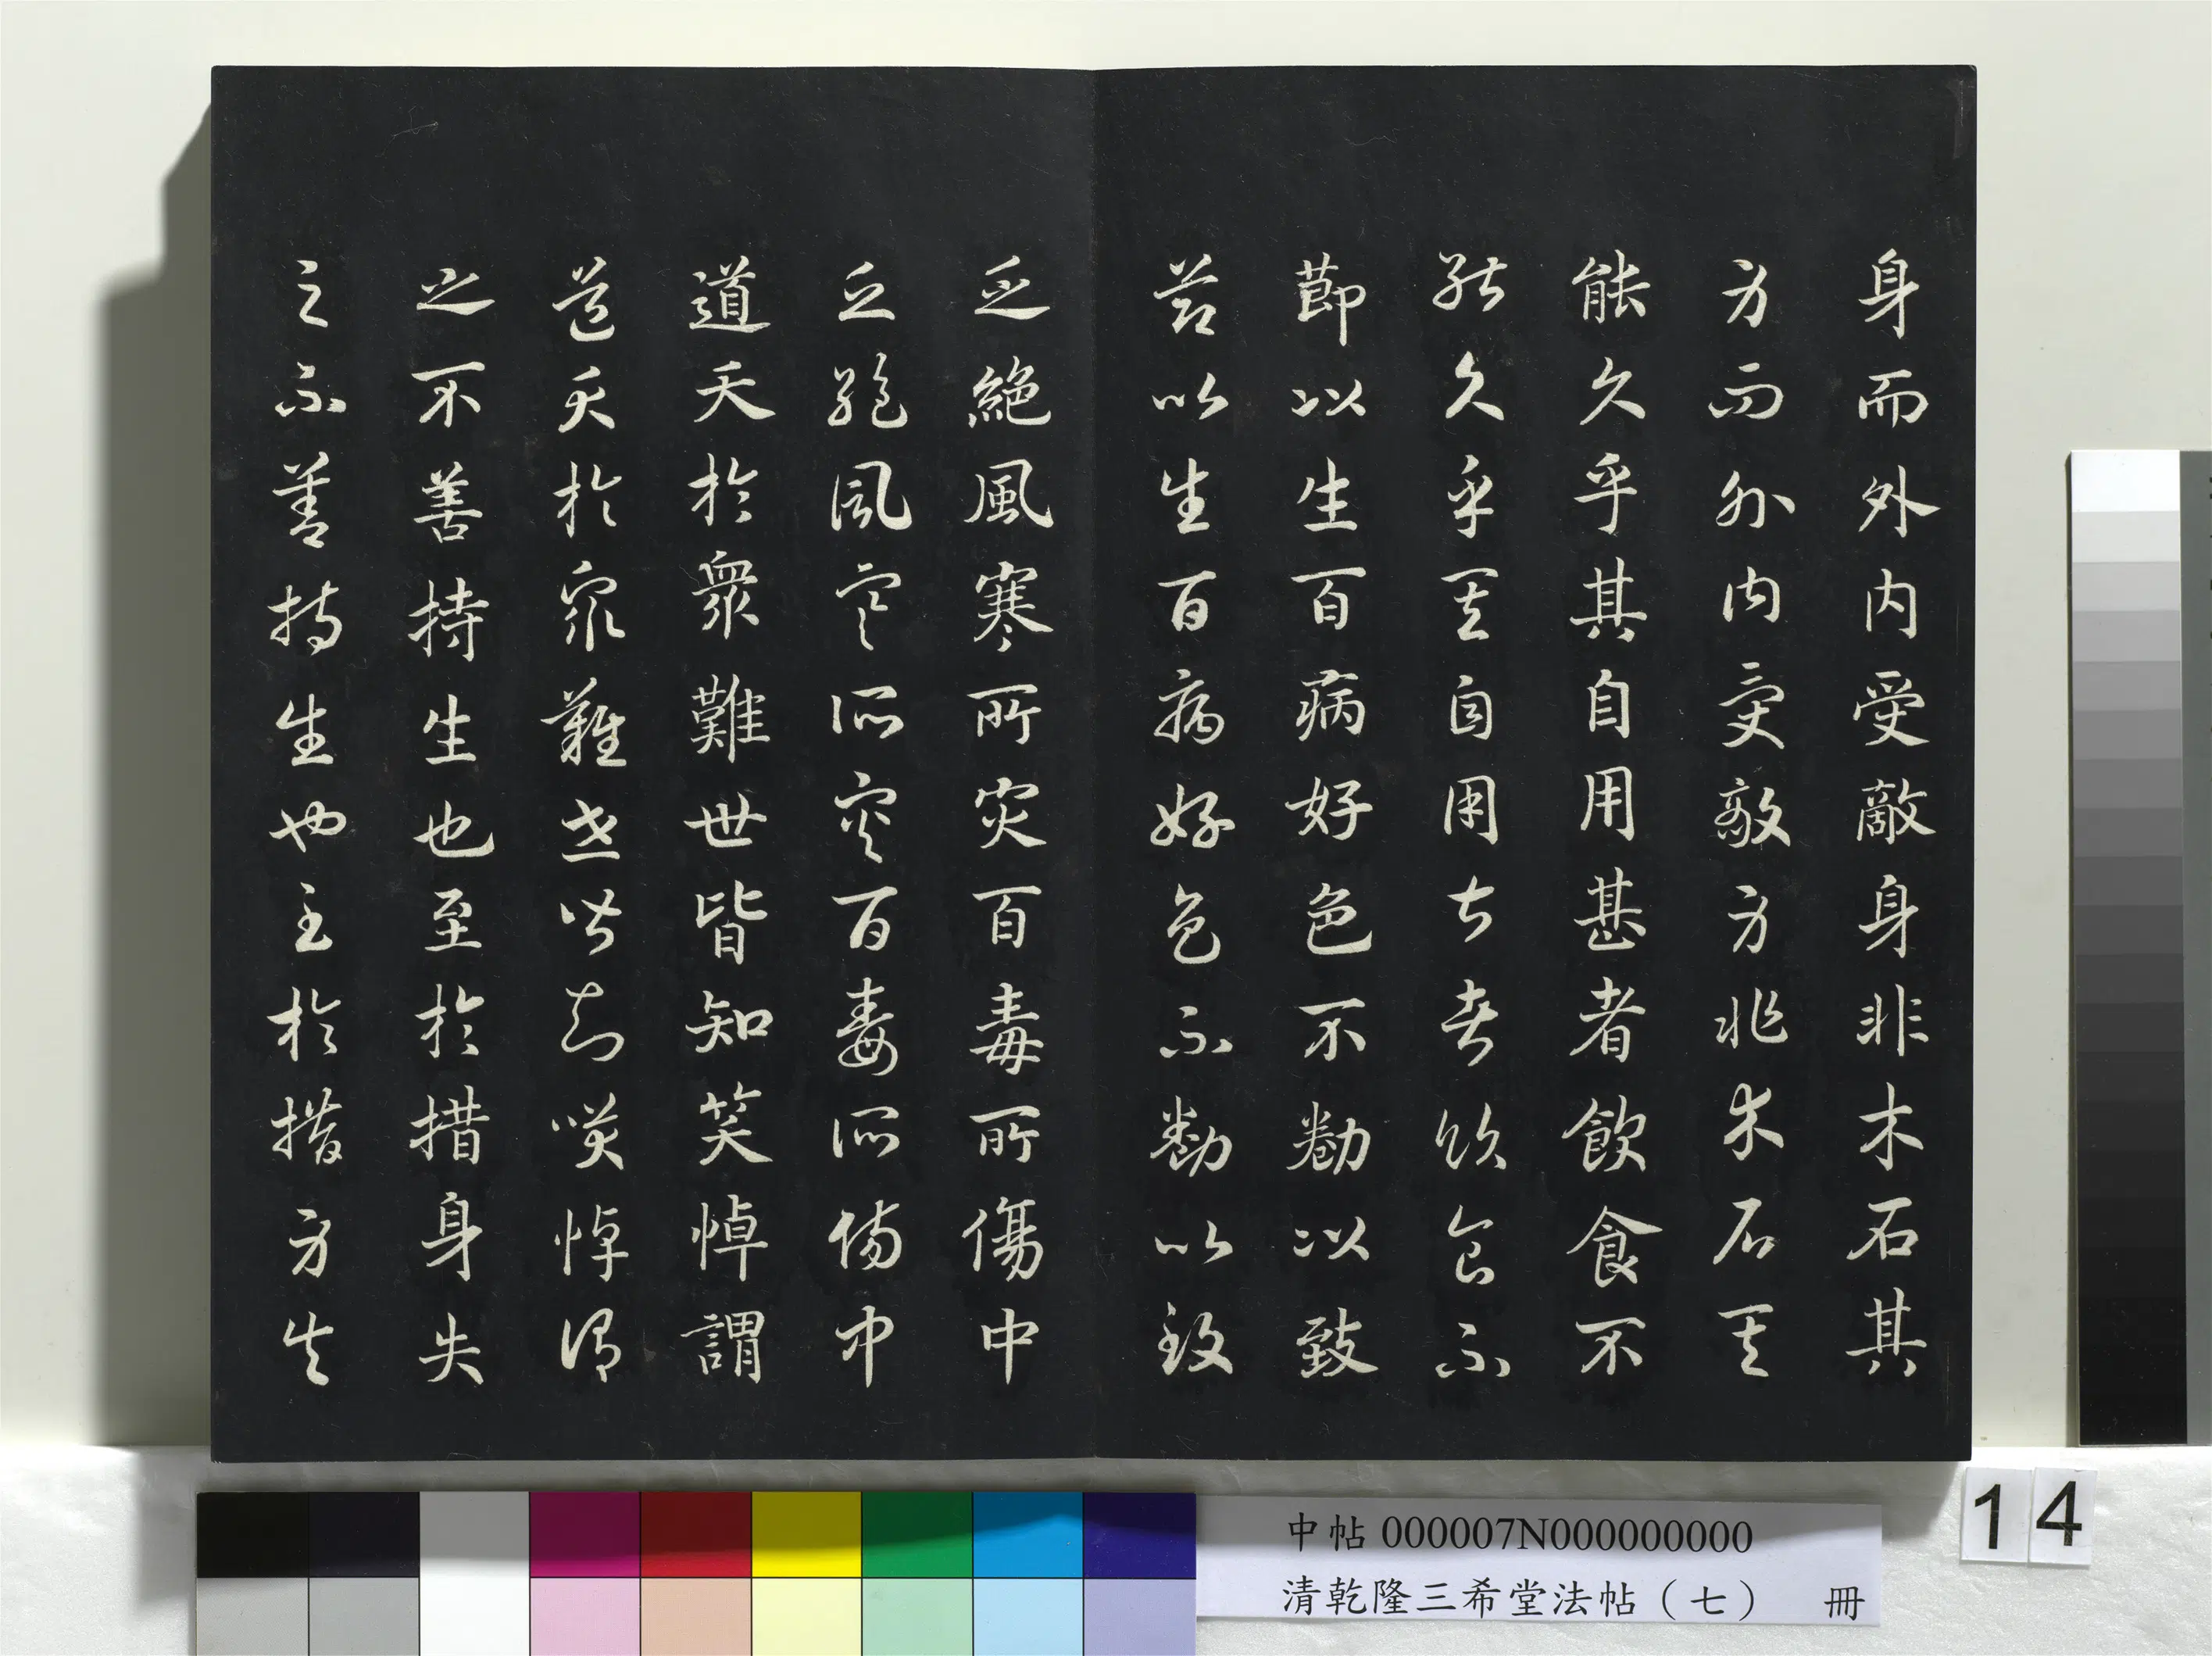 身而外内受敵身非木石其
身而外内受敵身非木石其
能久乎其自用甚者飲食不
能久乎其自用甚者飲食不
莭以生百病好色不勌以致
莭以生百病好色不勌以致
乏絶風寒所灾百毒所傷中
乏絶風寒所灾百毒所傷中
道夭於衆難世皆知笑悼謂
道夭於衆難世皆知咲悼謂
之不善持生也至於措身失
之不善持生也至於措身失
中帖 000007N000000000
清乾隆三希堂法帖（七） 冊
14